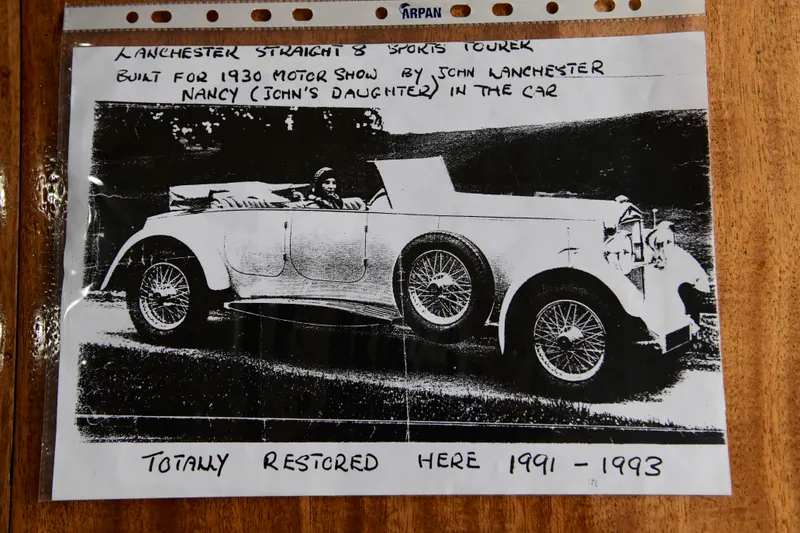 ARPAN
LANCHESTER STRAIGHT 8 SPORTS TOURER
BUILT FOR 1930 MOTOR SHOW BY JOHN LANCHESTER
NANCY (JOHN'S DAUGHTER) IN THE CAR
TOTALLY RESTORED HERE 1991 - 1993